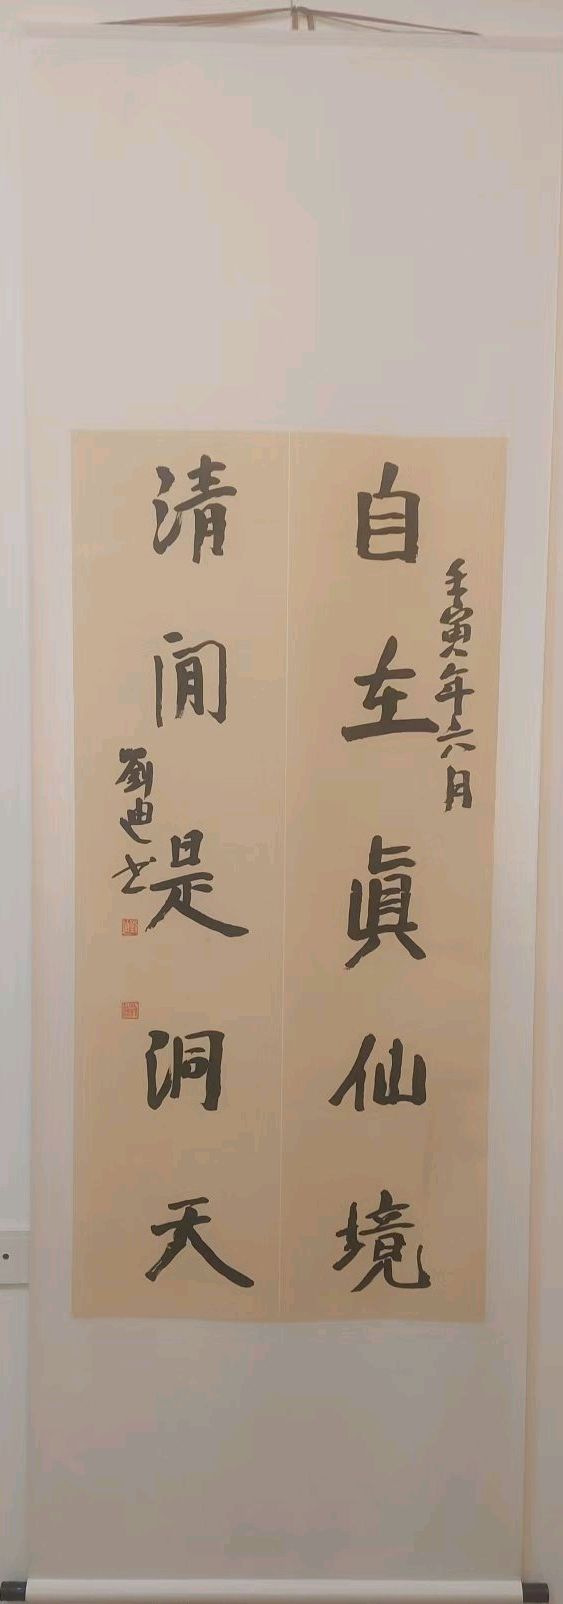 壬寅年六月
自在眞仙境
清閒是洞天
劉迪书